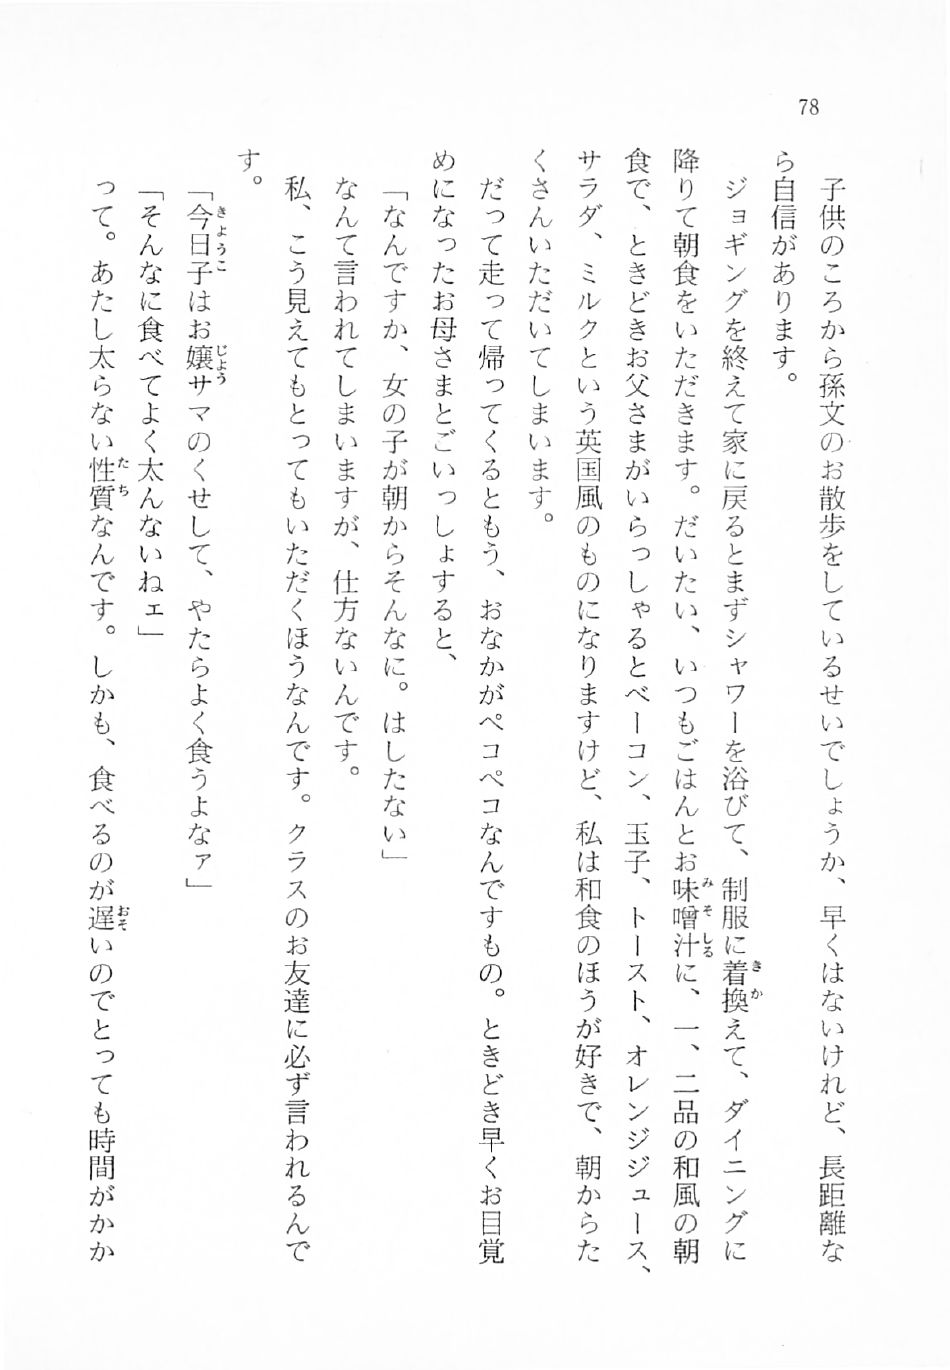 78
子供のころから孫文のお散歩をしているせいでしょうか、早くはないけれど、長距離な
ら自信があります。
ジョギングを終えて家に戻るとまずシャワーを浴びて、制服に着換えて、ダイニングに
降りて朝食をいただきます。だいたい、いつもごはんとお味噌汁に、一、二品の和風の朝
食で、ときどきお父さまがいらっしゃるとベーコン、玉子、トースト、オレンジジュース、
サラダ、ミルクという英国風のものになりますけど、私は和食のほうが好きで、朝からた
くさんいただいてしまいます。
だって走って帰ってくるともう、おなかがペコペコなんですもの。ときどき早くお目覚
めになったお母さまとごいっしょすると、
「なんですか、女の子が朝からそんなに。はしたない」
なんて言われてしまいますが、仕方ないんです。
私、こう見えてもとってもいただくほうなんです。クラスのお友達に必ず言われるんで
す。
「今日子はお嬢サマのくせして、やたらよく食うよなァ」
「そんなに食べてよく太んないねェ」
って。あたし太らない性質なんです。しかも、食べるのが遅いのでとっても時間がかか